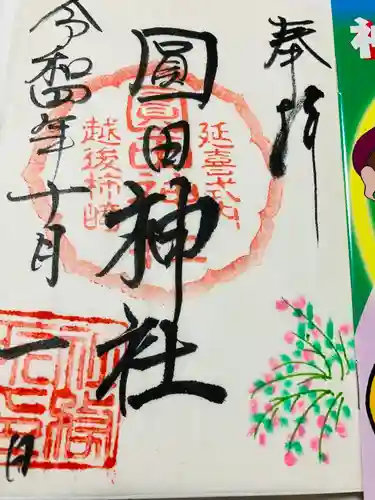 奉拝
延喜式内
圓田神社
越後柿崎
令和四年十月一日
神